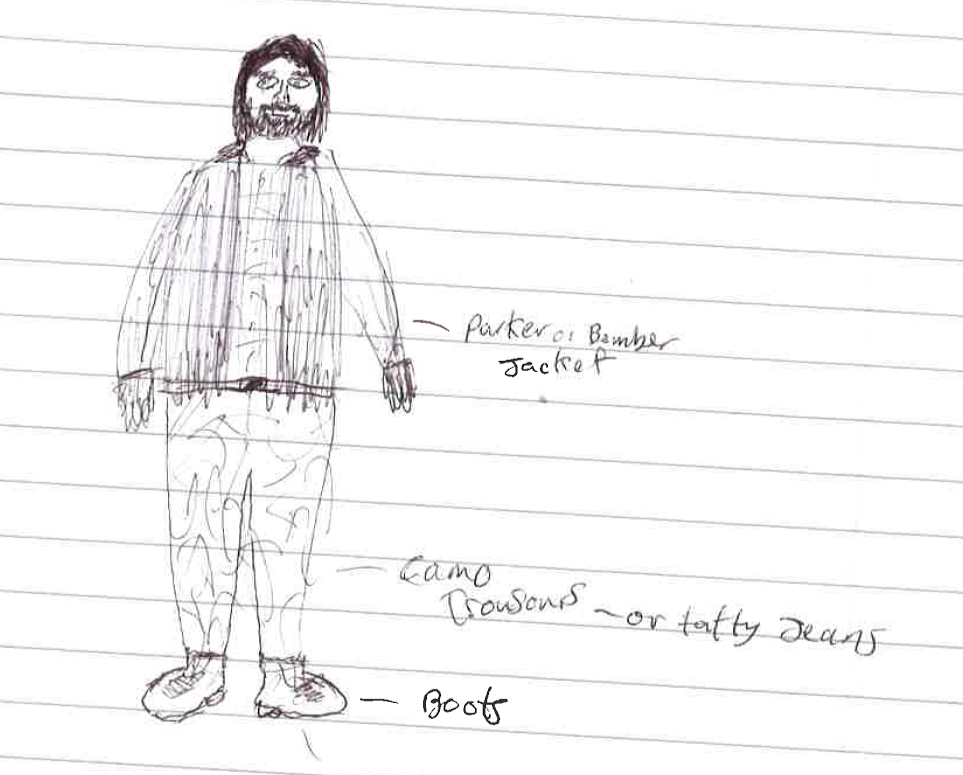 Parker or Bomber
Jacket
Camo
Trousours ~ or tatty Jeans
Boots